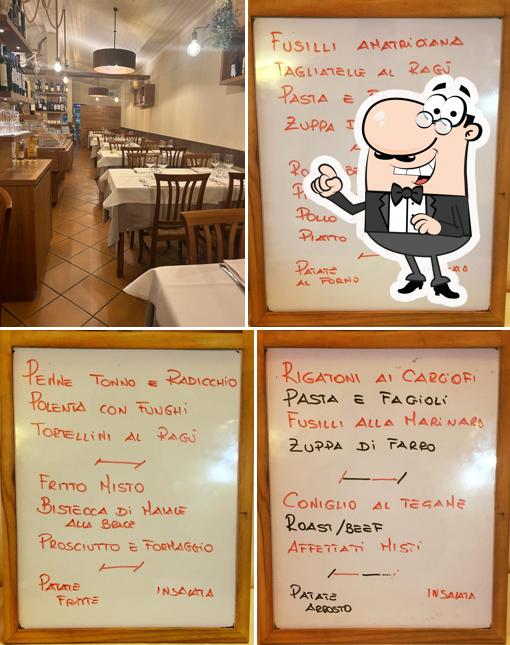 FUSILLI AMATRICIANA
TAGLIATELLE AL RAGÙ
PASTA E
ZUPPA
POLLO
PIATTO
PATATE
AL FORNO
PENNE TONNO E RADICCHIO
POLENTA CON FUNGHI
TORTELLINI AL RAGÙ
FRITTO MISTO
BISTECCA DI MAIALE
ALLA BRACE
PROSCIUTTO E FORMAGGIO
PATATE INSALATA
FRITTE
RIGATONI AI CARCIOFI
PASTA E FAGIOLI
FUSILLI ALLA MARINARA
ZUPPA DI FARRO
CONIGLIO AL TEGAME
ROAST/BEEF
AFFETTATI MISTI
PATATE INSALATA
ARROSTO